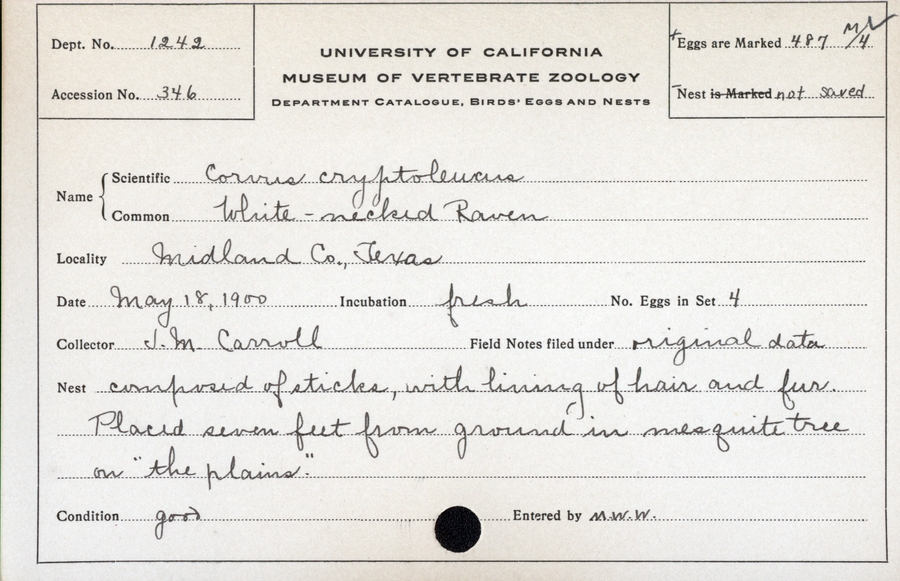 Dept. No. 1242
UNIVERSITY OF CALIFORNIA
MUSEUM OF VERTEBRATE ZOOLOGY
DEPARTMENT CATALOGUE, BIRDS' EGGS AND NESTS
Eggs are Marked 487 /4
Accession No. 346
Nest is Marked not saved
Name
Scientific Corvus cryptoleucus
Common White-necked Raven
Locality Midland Co., Texas
Date May 18, 1900 Incubation fresh No. Eggs in Set 4
Collector J. M. Carroll Field Notes filed under original data
Nest composed of sticks, with lining of hair and fur.
Placed seven feet from ground in mesquite tree
on "the plains."
Condition good Entered by M.W.W.